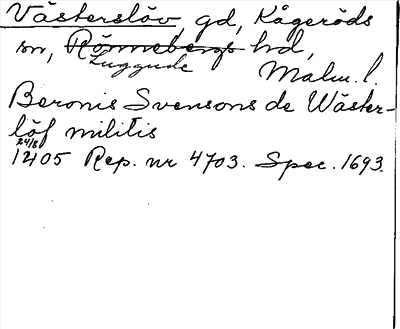 Västerslöv, gd, Kågeröds
sn, Rönnebergs hd,
Luggude
Malm. l.
Beronis Svensons de Wäster-
löf militis
24/8
1405 Rep. nr 4703. Spec. 1693.